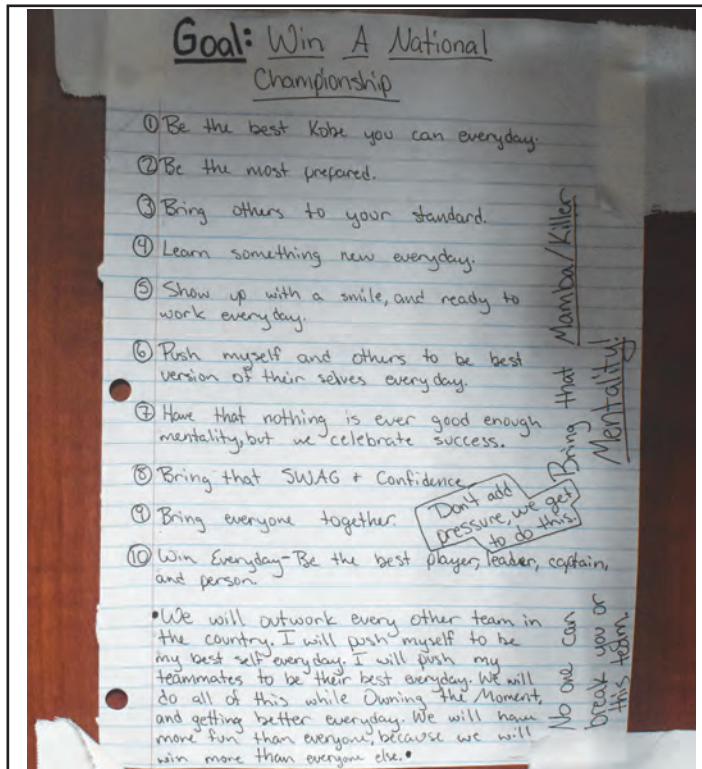 Goal: Win A National
Championship
① Be the best Kobe you can everyday.
② Be the most prepared.
③ Bring others to your standard.
④ Learn something new everyday.
⑤ Show up with a smile, and ready to
work everyday.
⑥ Push myself and others to be best
version of their selves everyday.
⑦ Have that nothing is ever good enough
mentality, but we celebrate success.
⑧ Bring that SWAG + Confidence
⑨ Bring everyone together.
Don't add
pressure, we get
to do this.
⑩ Win Everyday-Be the best player, leader, captain,
and person.
• We will outwork every other team in
the country. I will push myself to be
my best self everyday. I will push my
teammates to be their best everyday. We will
do all of this while Owning the Moment,
and getting better everyday. We will have
more fun than everyone, because we will
win more than everyone else. •
Bring that Mamba/Killer
Mentality!
No one can
break you or
this team